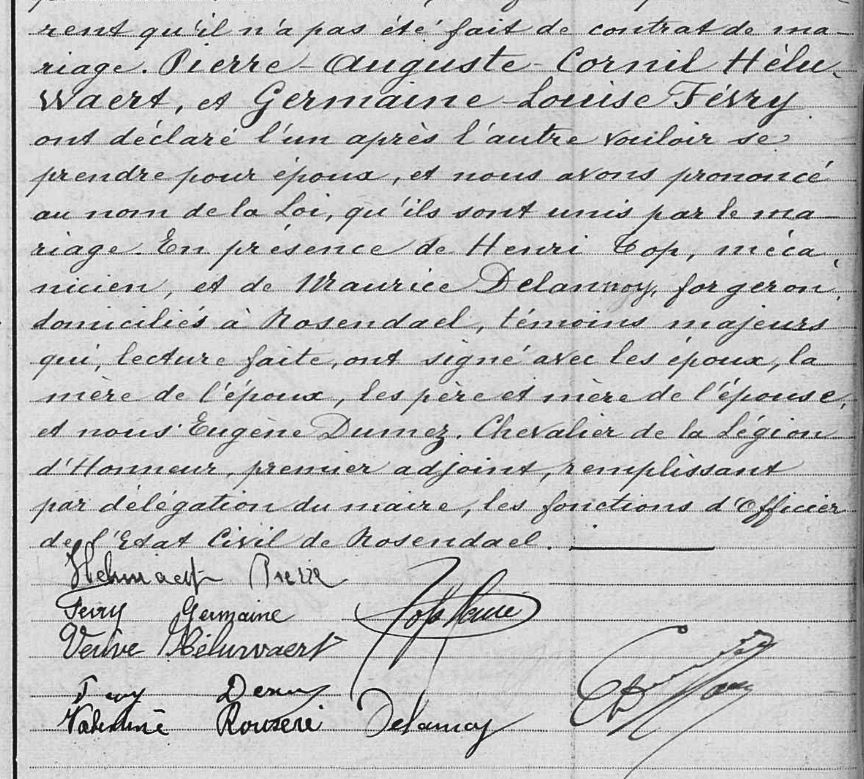 rent qu'il n'a pas été fait de contrat de ma-
riage. Pierre-Auguste-Cornil Hélu-
Waert, et Germaine-Louise Févry
ont déclaré l'un après l'autre vouloir se
prendre pour époux, et nous avons prononcé
au nom de la Loi, qu'ils sont unis par le ma-
riage. En présence de Henri Top, méca-
nicien, et de Maurice Delannoy, forgeron,
domiciliés à Rosendael, témoins majeurs
qui, lecture faite, ont signé avec les époux, la
mère de l'époux, les père et mère de l'épouse,
et nous Eugène Dumez, Chevalier de la Légion
d'Honneur, premier adjoint, remplissant
par délégation du maire, les fonctions d'Officier
de l'Etat Civil de Rosendael.
Heluwaert Pierre
Fevry Germaine
Veuve Héluwaert
Valentine Delannoy